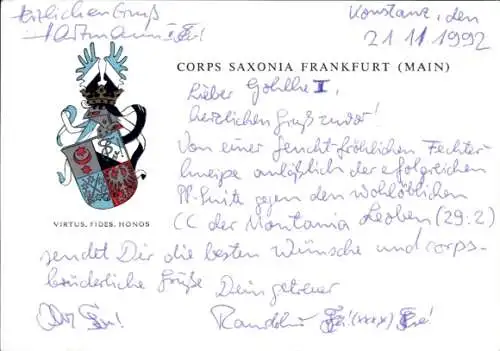 Herzlichen Gruß
Hartmann I
Konstanz, den
21.11.1992
CORPS SAXONIA FRANKFURT (MAIN)
Lieber Gohlke I,
herzlichen Gruß zuvor!
Von einer feucht-fröhlichen Fechter
kneipe anläßlich der erfolgreichen
PP-Suite gegen den wohllöblichen
CC der Montania Leoben (29:2)
VIRTUS, FIDES, HONOS
sendet Dir die besten Wünsche und corps-
brüderliche Grüße Dein getreuer
(xxxx)